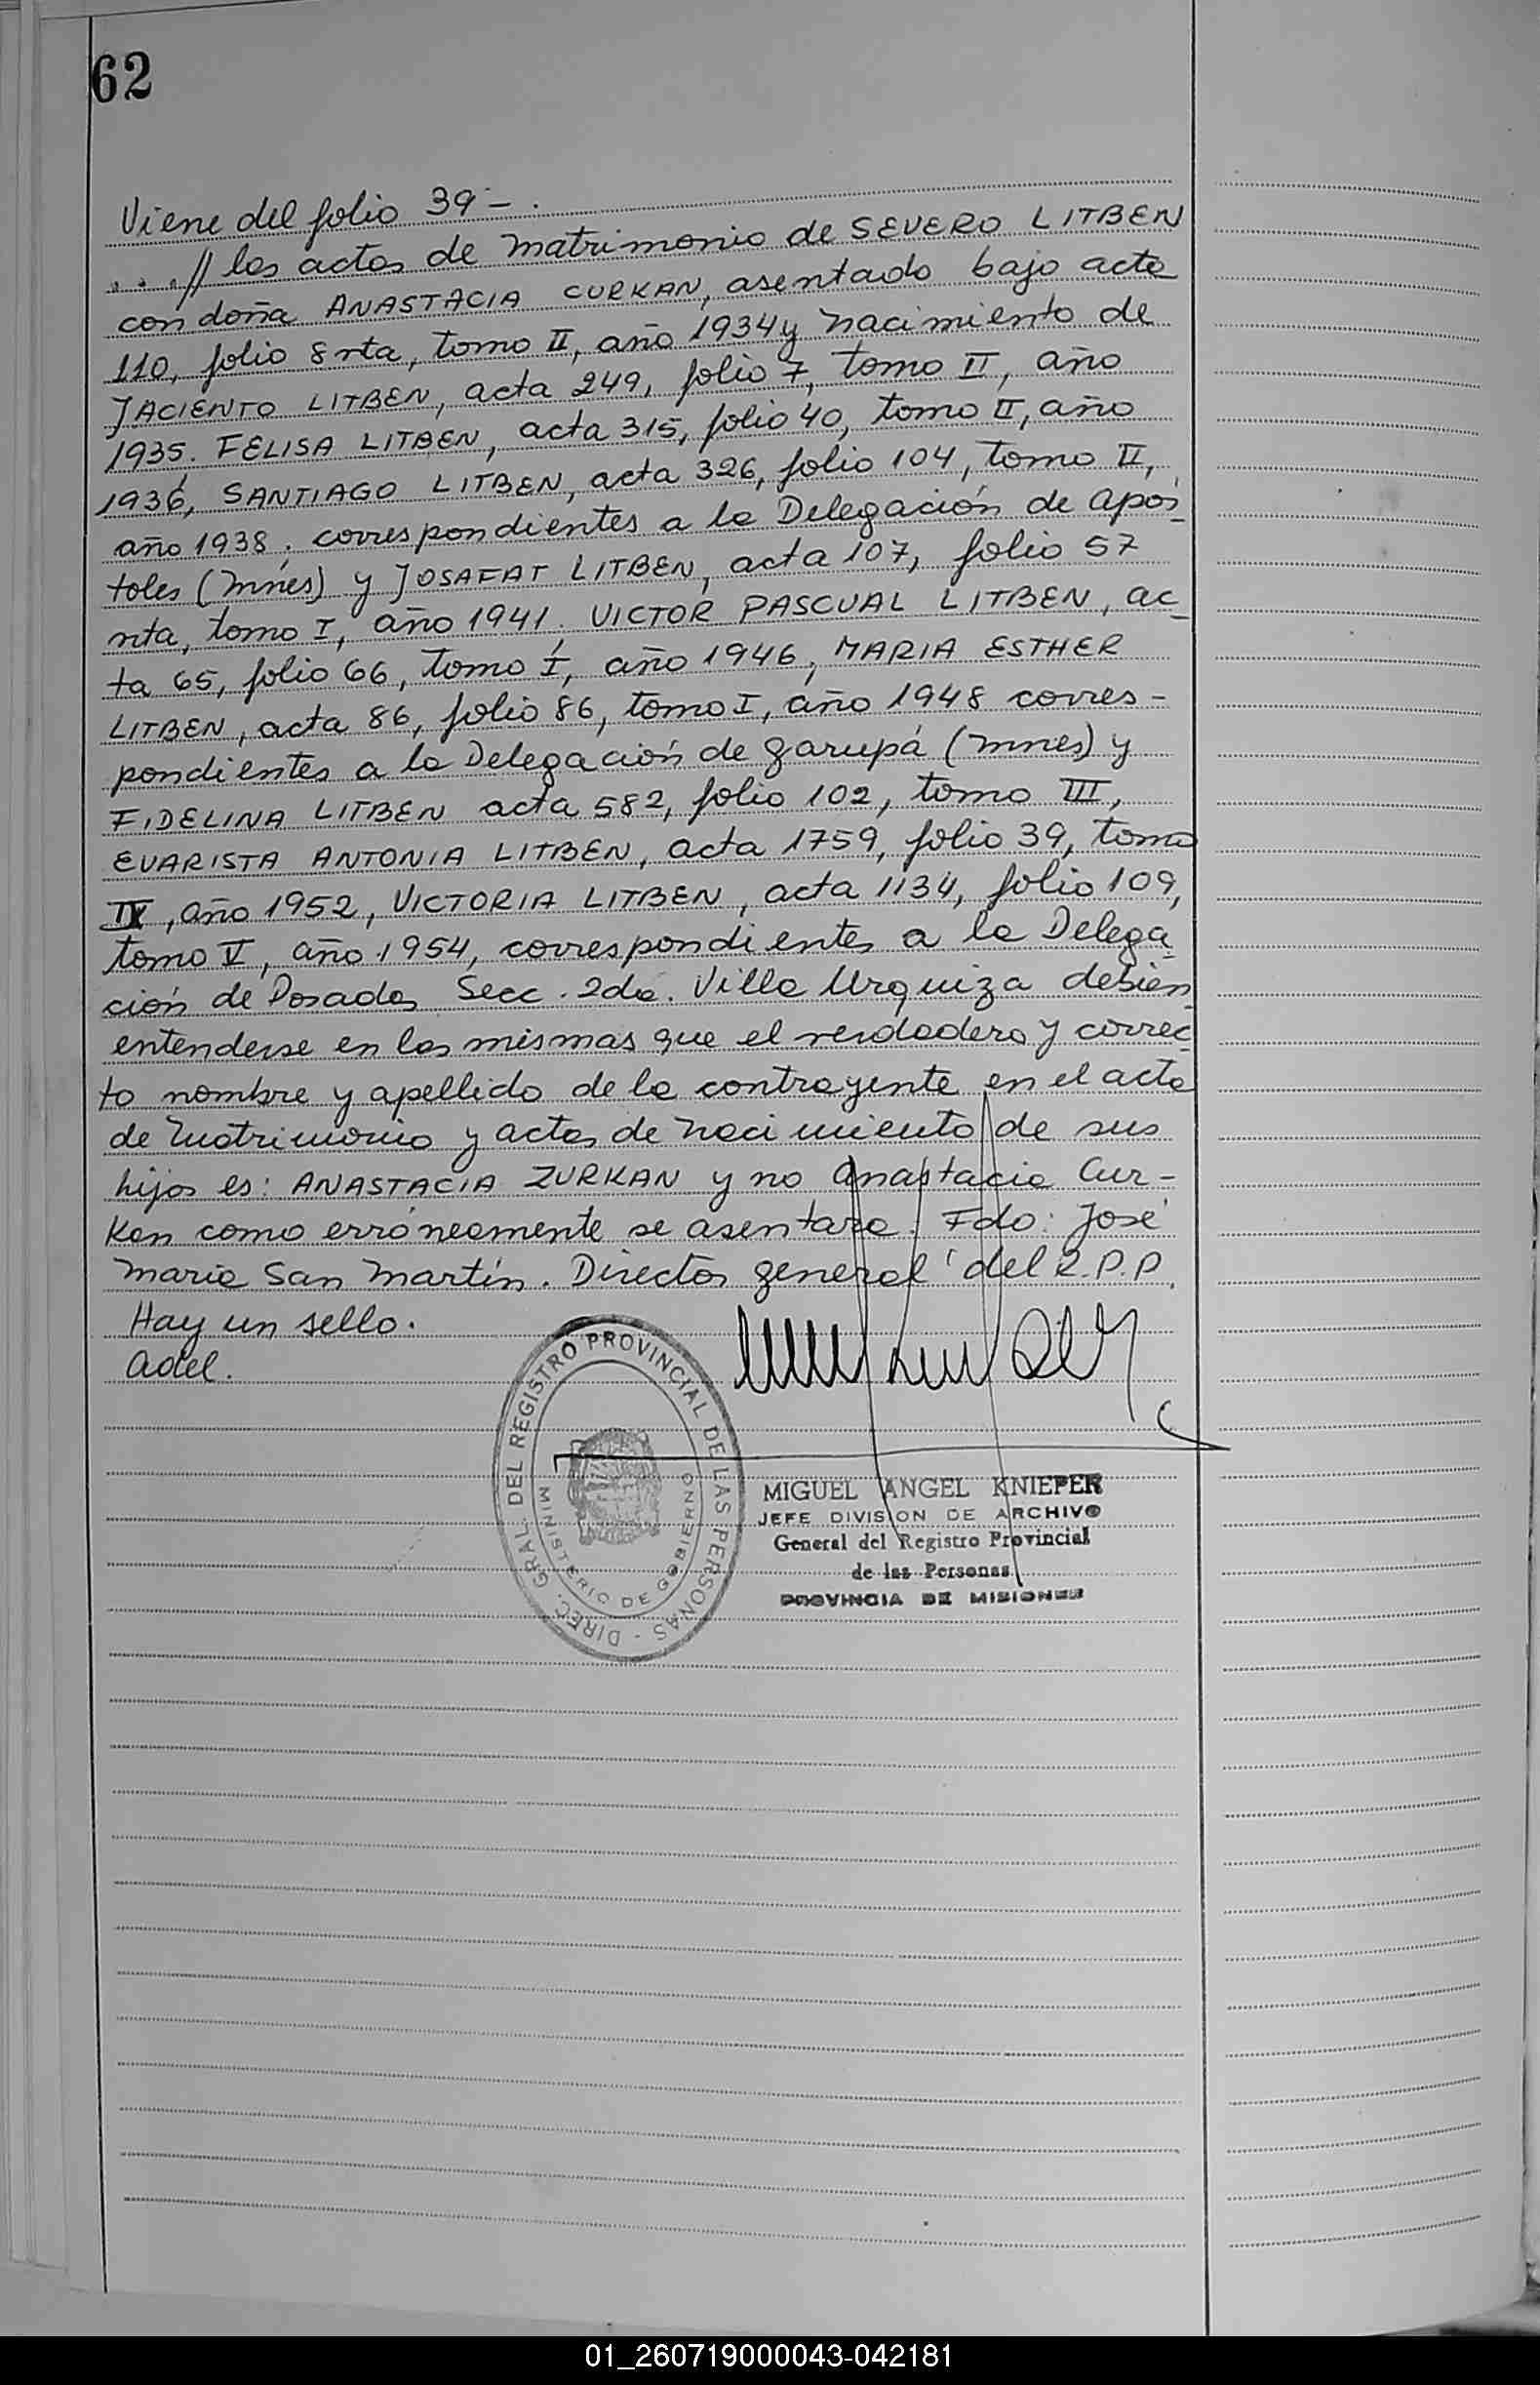 62
Viene del folio 39-.
...// las actas de matrimonio de SEVERO LITBEN
con doña ANASTACIA CURKAN, asentado bajo acta
110, folio 8 vta, tomo II, año 1934 y nacimiento de
JACIENTO LITBEN, acta 249, folio 7, tomo II, año
1935. FELISA LITBEN, acta 315, folio 40, tomo II, año
1936, SANTIAGO LITBEN, acta 326, folio 104, tomo II,
año 1938. correspondientes a la Delegación de após
toles (mnes) y JOSAFAT LITBEN, acta 107, folio 57
vta, tomo I, año 1941. VICTOR PASCUAL LITBEN, ac
ta 65, folio 66, tomo I, año 1946, MARIA ESTHER
LITBEN, acta 86, folio 86, tomo I, año 1948 corres-
pondientes a la Delegación de garupá (mnes) y
FIDELINA LITBEN acta 582, folio 102, tomo III,
EVARISTA ANTONIA LITBEN, acta 1759, folio 39, tomo
IV, año 1952, VICTORIA LITBEN, acta 1134, folio 109,
tomo V, año 1954, correspondientes a la Delega
ción de Posadas Secc. 2da. Villa Urquiza debien
entenderse en las mismas que el verdadero y correc
to nombre y apellido de la contrayente en el acta
de matrimonio y actas de nacimiento de sus
hijos es: ANASTACIA ZURKAN y no Anastacia Cur-
kan como erróneamente se asentara. Fdo: José
maria San Martín. Director general del R.P.P.
Hay un sello.
adel.
DIREC. GRAL. DEL REGISTRO PROVINCIAL DE LAS PERSONAS -
MINISTERIO DE GOBIERNO
MIGUEL ANGEL KNIEPER
JEFE DIVISION DE ARCHIVO
General del Registro Provincial
de las Personas
PROVINCIA DE MISIONES
01_260719000043-042181